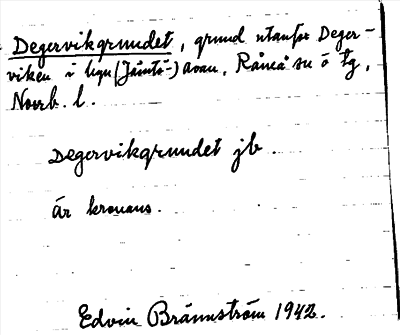 Degervikgrundet, grund utanför Deger-
viken i (Jämtö-) avan, Råneå sn o tg,
Norrb. l.
Degervikgrundet jb.
är kronans.
Edvin Brännström 1942.